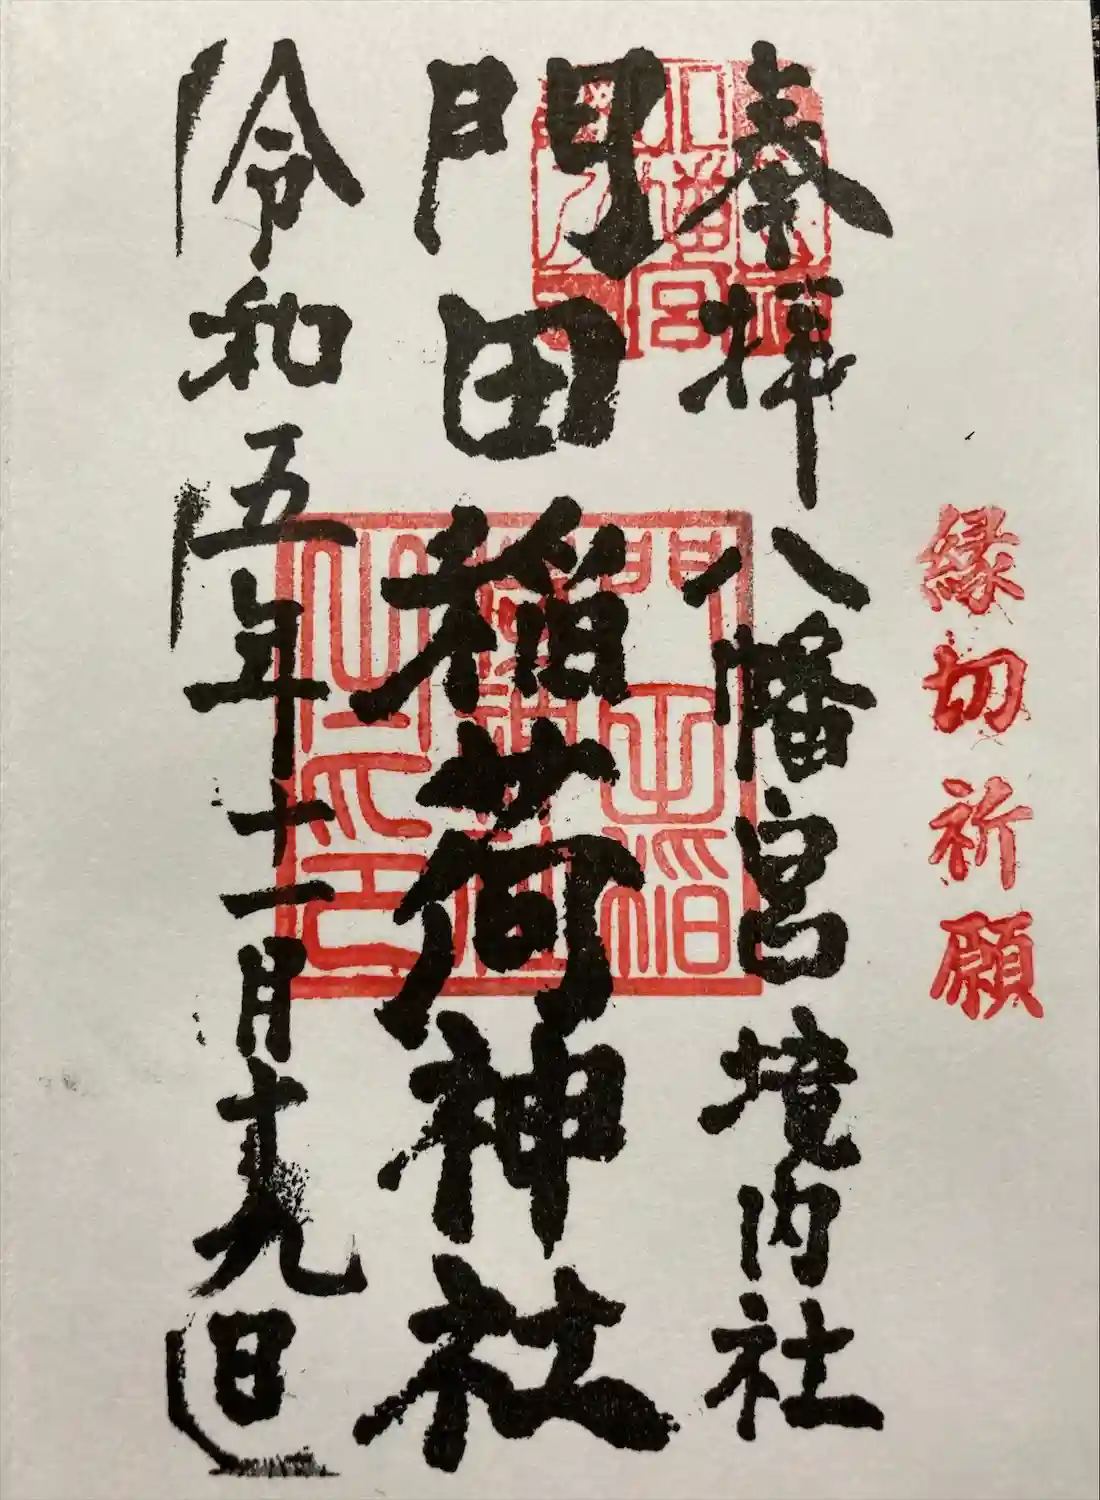 縁切祈願
奉拝 八幡宮境内社
門田稲荷神社
令和五年十一月十九日